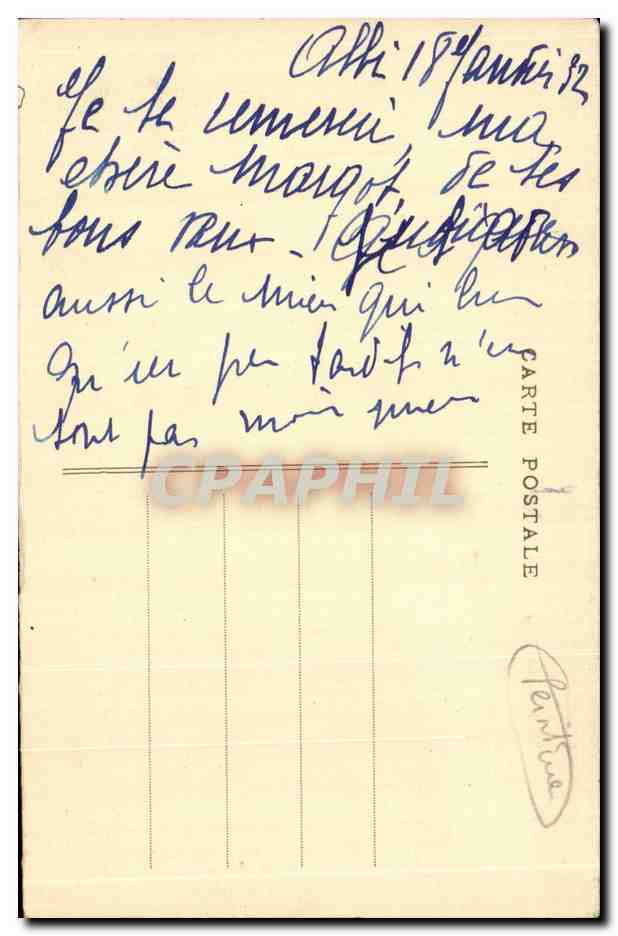 Albi 18 Janvier 32
Je te remercie, ma
chère Margot, de tes
bons vœux -
aussi le mien qui
qu'un peu tardif n'en
sont pas moins
CARTE POSTALE
CPAPHIL
Peinture